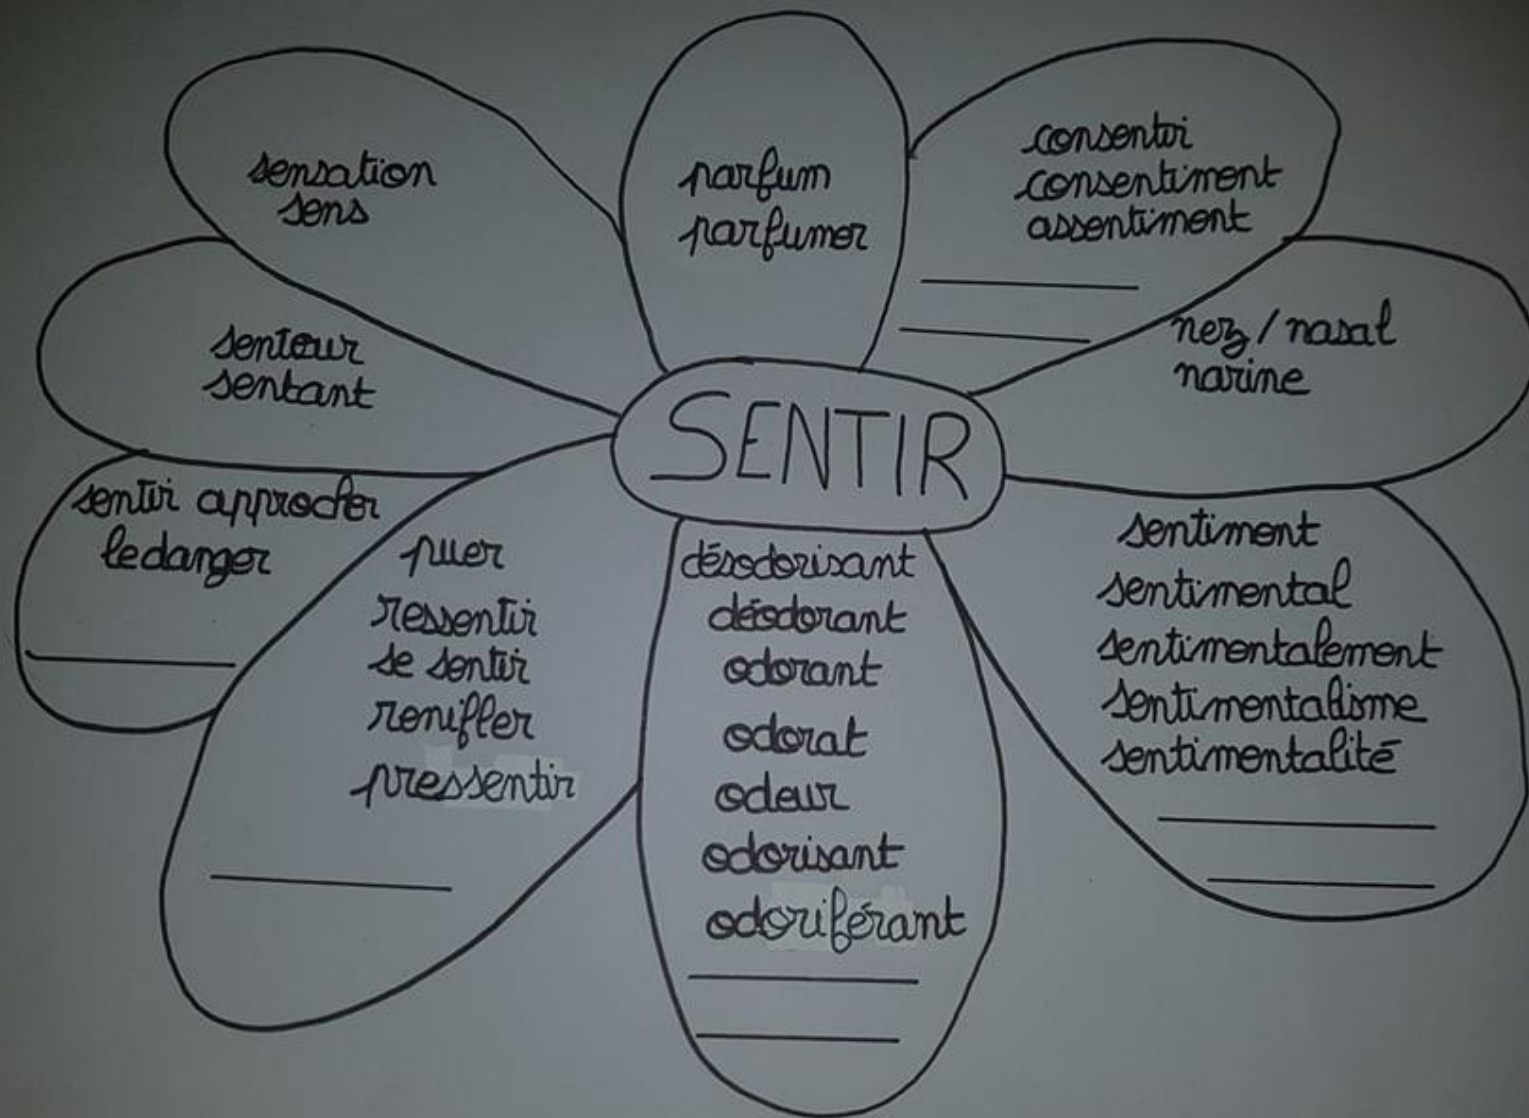 sensation
sens
parfum
parfumer
consentir
consentiment
assentiment
senteur
sentant
nez / nasal
narine
SENTIR
sentir approcher
le danger
puer
ressentir
se sentir
renifler
pressentir
désodorisant
déodorant
odorant
odorat
odeur
odorisant
odoriférant
sentiment
sentimental
sentimentalement
sentimentalisme
sentimentalité